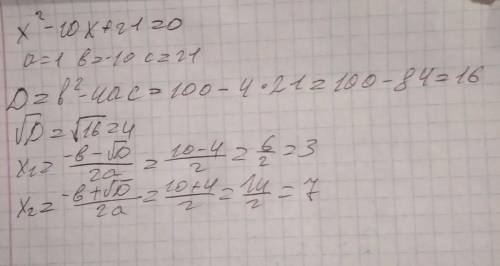 x² - 10x + 21 = 0
a = 1 в = -10 c = 21
D = в² - 4ac = 100 - 4 * 21 = 100 - 84 = 16
√D = √16 = 4
x₁ = (-в - √D)/2a = (10 - 4)/2 = 6/2 = 3
x₂ = (-в + √D)/2a = (10 + 4)/2 = 14/2 = 7